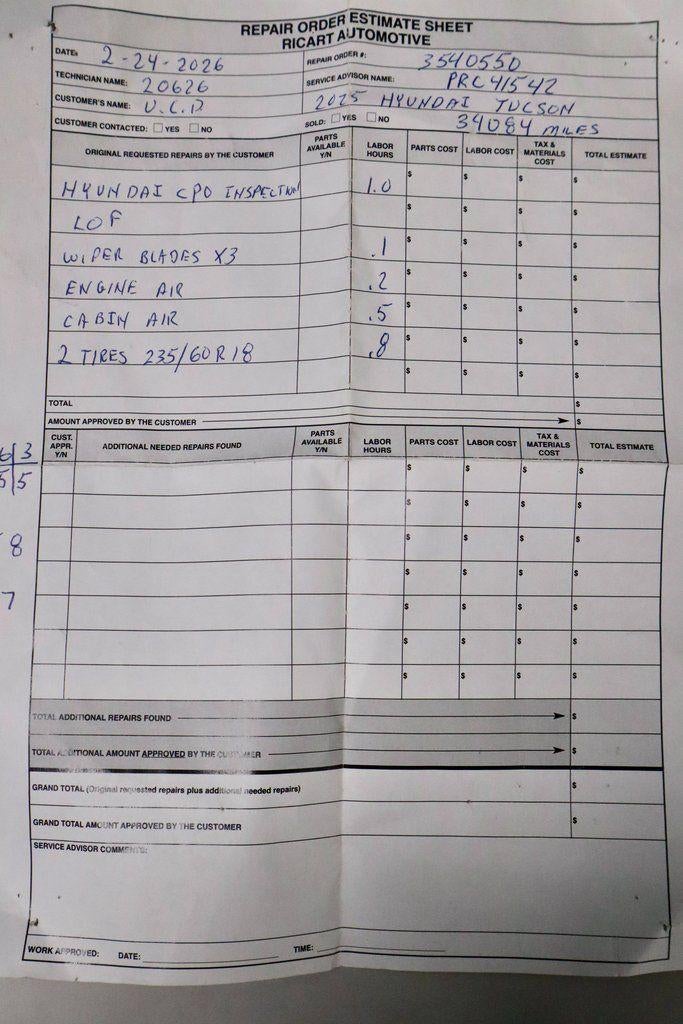 REPAIR ORDER ESTIMATE SHEET
RICART AUTOMOTIVE
DATE: 2-24-2026 REPAIR ORDER #: 3540550
TECHNICIAN NAME: 20626 SERVICE ADVISOR NAME: PRC41542
CUSTOMER'S NAME: U.C.D 2025 HYUNDAI TUCSON
CUSTOMER CONTACTED: YES NO SOLD: YES NO 34084 MILES
ORIGINAL REQUESTED REPAIRS BY THE CUSTOMER PARTS AVAILABLE Y/N LABOR HOURS PARTS COST LABOR COST TAX & MATERIALS COST TOTAL ESTIMATE
HYUNDAI CPO INSPECTION 1.0 $ $ $ $
LOF $ $ $ $
WIPER BLADES X3 .1 $ $ $ $
ENGINE AIR .2 $ $ $ $
CABIN AIR .5 $ $ $ $
2 TIRES 235/60R18 .8 $ $ $ $
$ $ $ $
TOTAL $
AMOUNT APPROVED BY THE CUSTOMER $
CUST. APPR. Y/N ADDITIONAL NEEDED REPAIRS FOUND PARTS AVAILABLE Y/N LABOR HOURS PARTS COST LABOR COST TAX & MATERIALS COST TOTAL ESTIMATE
6 3 $ $ $ $
5 5 $ $ $ $
8 $ $ $ $
7 $ $ $ $
$ $ $ $
$ $ $ $
$ $ $ $
TOTAL ADDITIONAL REPAIRS FOUND $
TOTAL ADDITIONAL AMOUNT APPROVED BY THE CUSTOMER $
GRAND TOTAL (Original requested repairs plus additional needed repairs) $
GRAND TOTAL AMOUNT APPROVED BY THE CUSTOMER $
SERVICE ADVISOR COMMENTS:
WORK APPROVED: DATE: TIME: